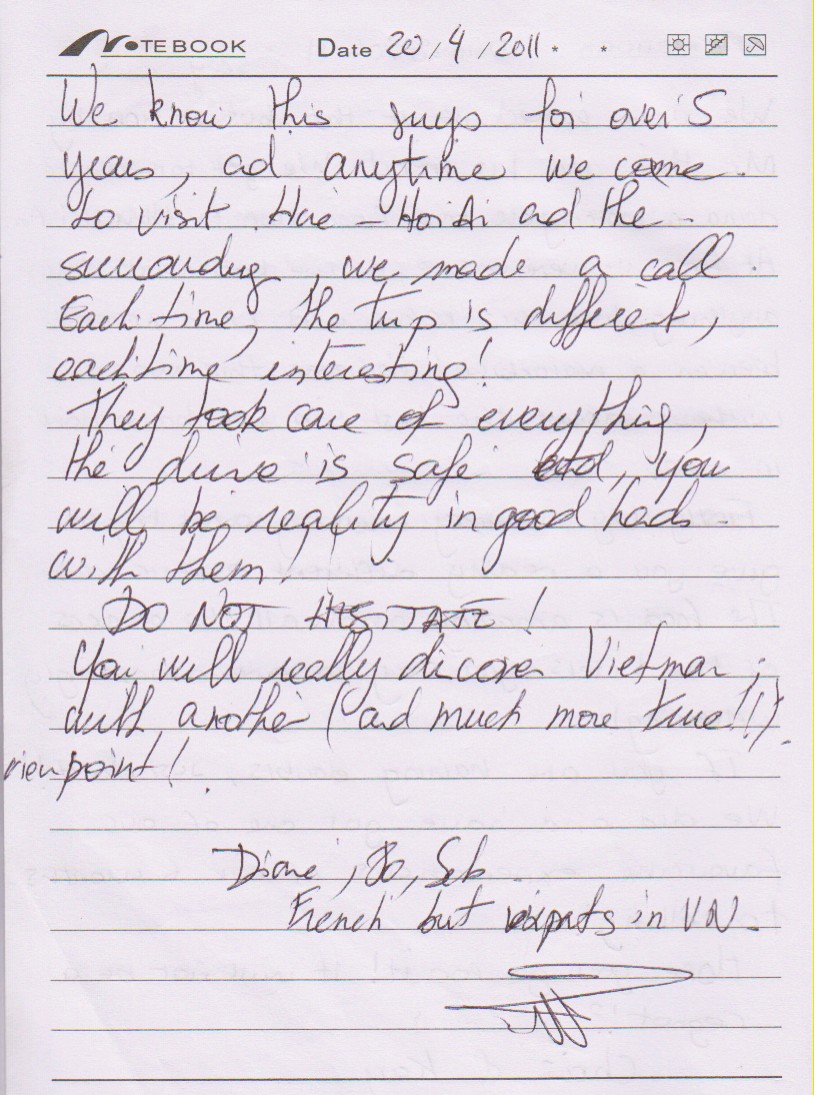 NOTEBOOK Date 20/4/2011 * *
We know this guys for over 5
years, ad anytime we come
to visit Hue - HoiAi ad the
surrounding we made a call.
Each time, the trip is different,
each time interesting!
They took care of everything,
the drive is safe and, you
will be reality in good hads
with them!
DO NOT HESITATE!
You will really dicover Vietman,
with another (and much more true!!!)
viewpoint!
Diane, Bo, Seb.
French but expats in VN.